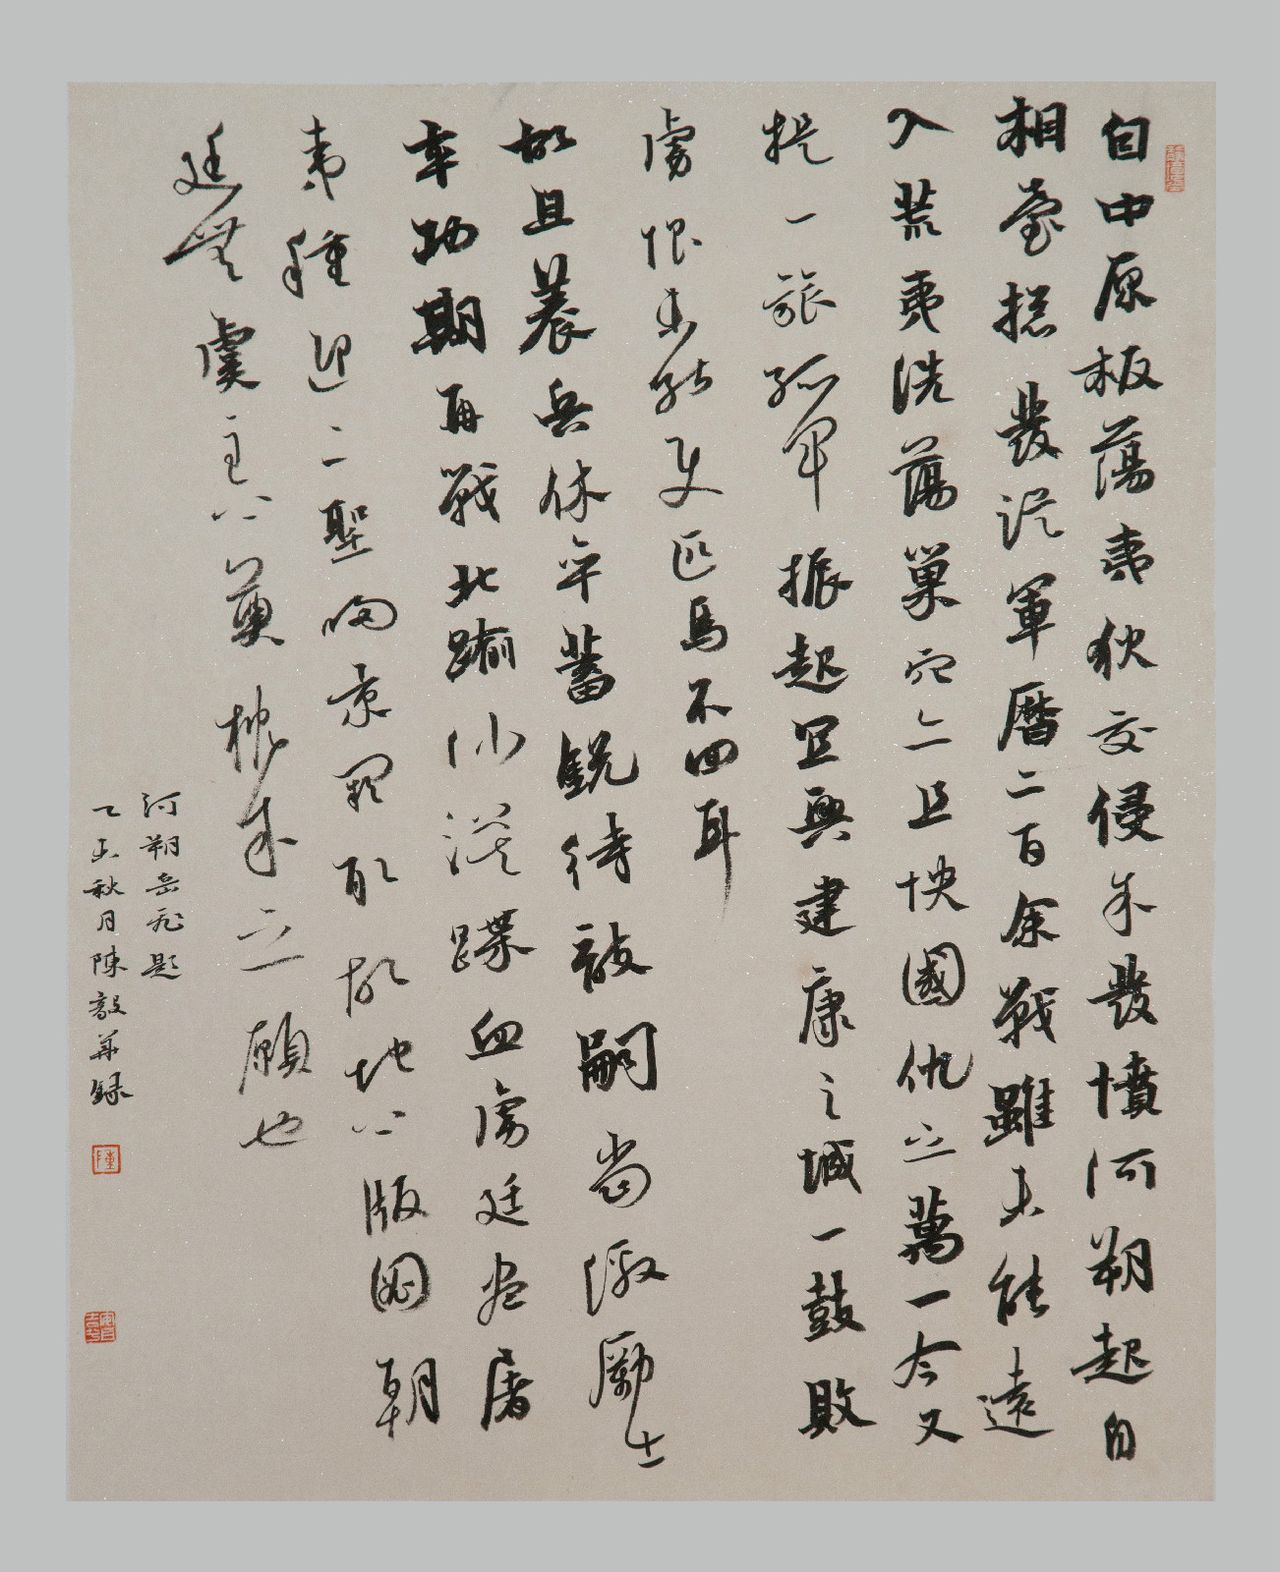 自中原板蕩夷狄交侵余發憤河朔起自
相臺揔發從軍曆二百余戰雖未能遠
入荒夷洗蕩巢穴亦且快國仇之萬一今又
提一旅孤軍振起宜興建康之城一鼓敗
虜恨未能使匹馬不回耳
故且養兵休卒蓄銳待敵嗣當激勵士
卒功期再戰北踰沙漠蹀血虜廷盡屠
夷種迎二聖歸京闕取故地上版圖朝
廷無虞主上奠枕余之願也
河朔岳飛題
乙未秋月陳毅華録
陳